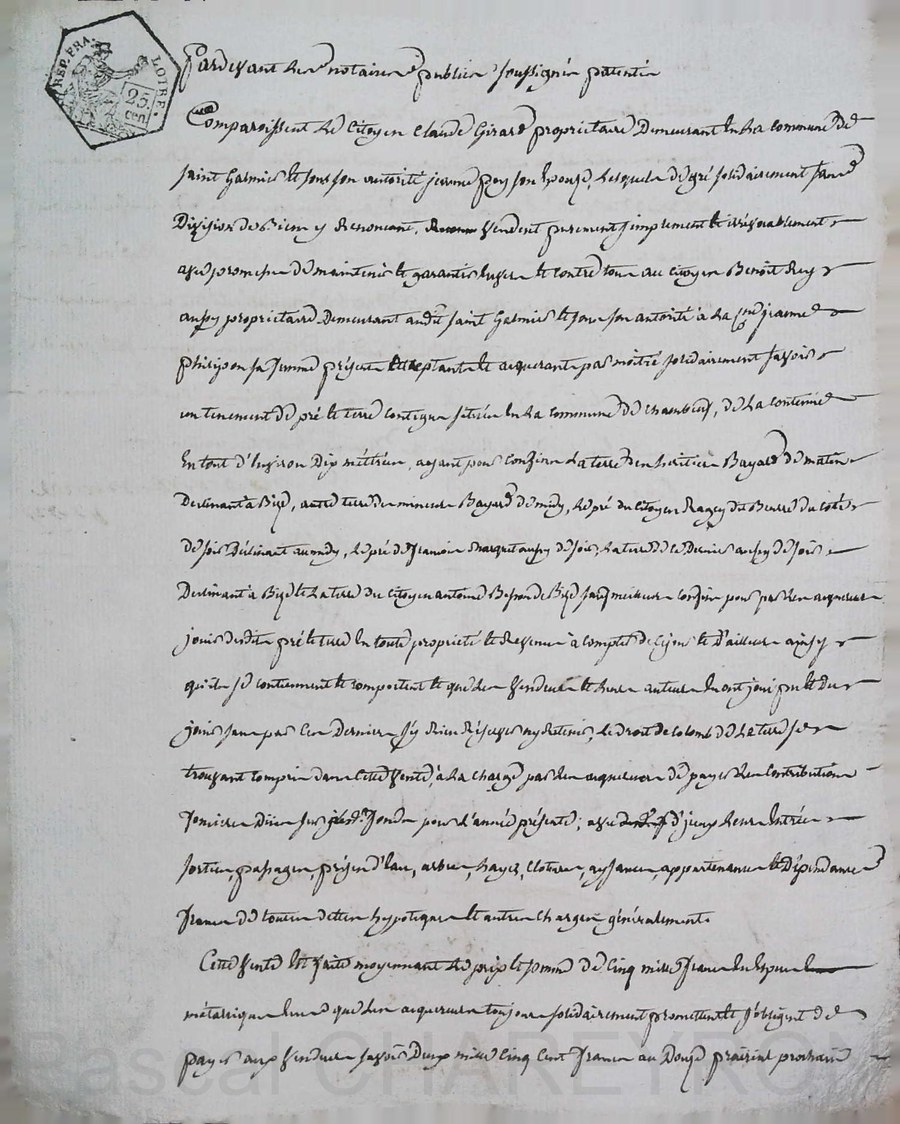 REP. FRA. LOIRE. 25 cen
Pardevant les notaires publics soussignés patentés
Comparoissent le Citoyen Claude Girard propriétaire Demeurant en la commune de
saint Galmier et sous son autorité jeanne pouse, lesquels de gré solidairement sans
Division de Biens y Renoncant, vendent purement simplement et irrévocablement
avec promesse de maintenir et garantir envers et contre tous au Citoyen Benoit Rey
aussy propriétaire Demeurant audit saint Galmier et sous son autorité à La Cne jeanne
philipon sa femme présents acceptants et acquerants par moitié solidairement savoir
un tenement de pré et terre contigus situés en la commune de Chambœuf, de la contenue
En tout d'Environ Dix métérées, ayant pour Confins la terre des héritiers Bayard de matin
Declinant à Bize, autre terre des mineurs Bayard de midy, le pré du Citoyen Ragey dit Beurre du coté
de soir Déclinant au midy, le pré de francois aussy de soir, la terre de ce Dernier aussy de soir
Declinant à Bize et la terre du Citoyen antoine Besson de Bize sauf meilleurs confins pour par les acquereurs
jouir desdits pré et terre En toute propriété et Revenus à compter de ce jour et d'ailleurs ainsy
qu'ils se contiennent et comportent et que les Vendeurs et leurs auteurs En ont joui pu et du
jouir sans par ces Derniers s'y Rien Réserver ny Retenir, le droit de colomb de la terre se
trouvant compris dans Cette Vente, à la charge par les acquereurs de payer les Contributions
foncieres Dües sur lesd. fonds pour l'année présente; avec d'iceux leurs Entrées
sorties passages, prises d'Eau, arbres, hayes, Clotures, aysances, appartenances et Dépendances
francs de toutes dettes hypoteques et autres Charges généralement.
Cette Vente Est faite moyennant le prix et somme de Cinq mille francs En Especes
métalliques que les acquereurs toujours solidairement promettent et s'obligent de
payer aux Vendeurs savoir Deux mille Cinq Cent francs au Douze prairial prochain
Pascal CHAREYRON